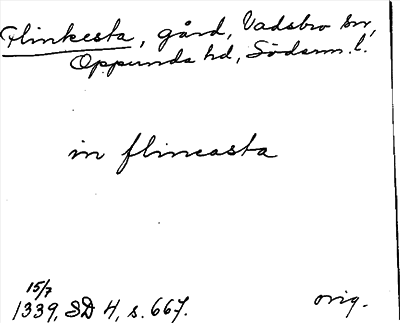 Flinkesta, gård, Vadsbro sn,
Oppunda hd, Söderm. l.
in flincasta
15/7
1339, SD 4, s. 667.
orig.